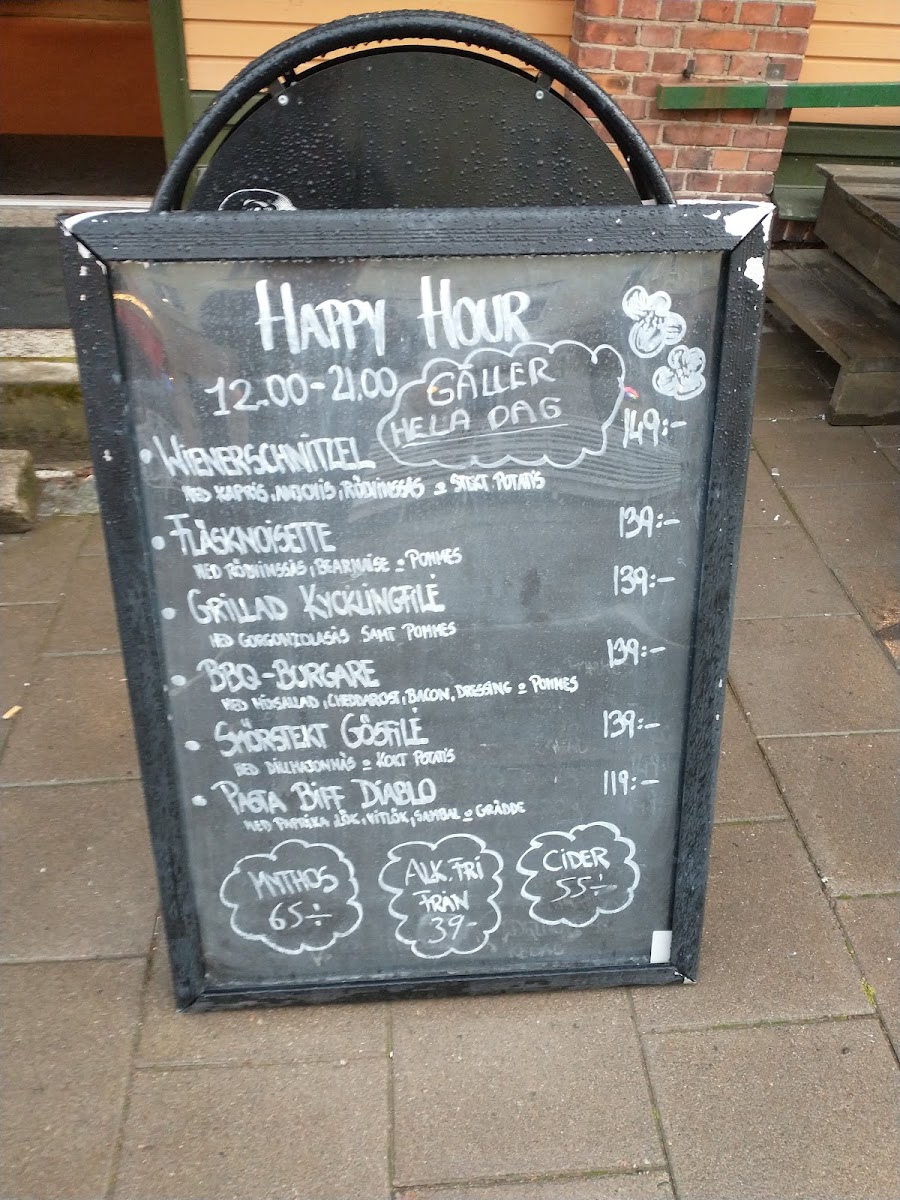 HAPPY HOUR
12.00-21.00
GÄLLER
HELA DAG
• WIENERSCHNITZEL 149:-
MED KAPRIS, ANJOVIS, RÖDVINSSÅS o STEKT POTATIS
• FLÄSKNOISETTE 139:-
MED RÖDVINSSÅS, BEARNAISE o POMMES
• GRILLAD KYCKLINGFILÉ 139:-
MED GORGONZOLASÅS SAMT POMMES
• BBQ-BURGARE 139:-
MED MIXSALLAD, CHEDDAROST, BACON, DRESSING o POMMES
• SMÖRSTEKT GÖSFILÉ 139:-
MED DILLMAJONNÄS o KOKT POTATIS
• PASTA BIFF DIABLO 119:-
MED PAPRIKA, LÖK, VITLÖK, SAMBAL o GRÄDDE
MYTHOS
65÷
ALK.FRI
FRÅN
39-
CIDER
55÷